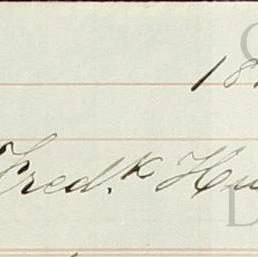 18
Fred.k Hu